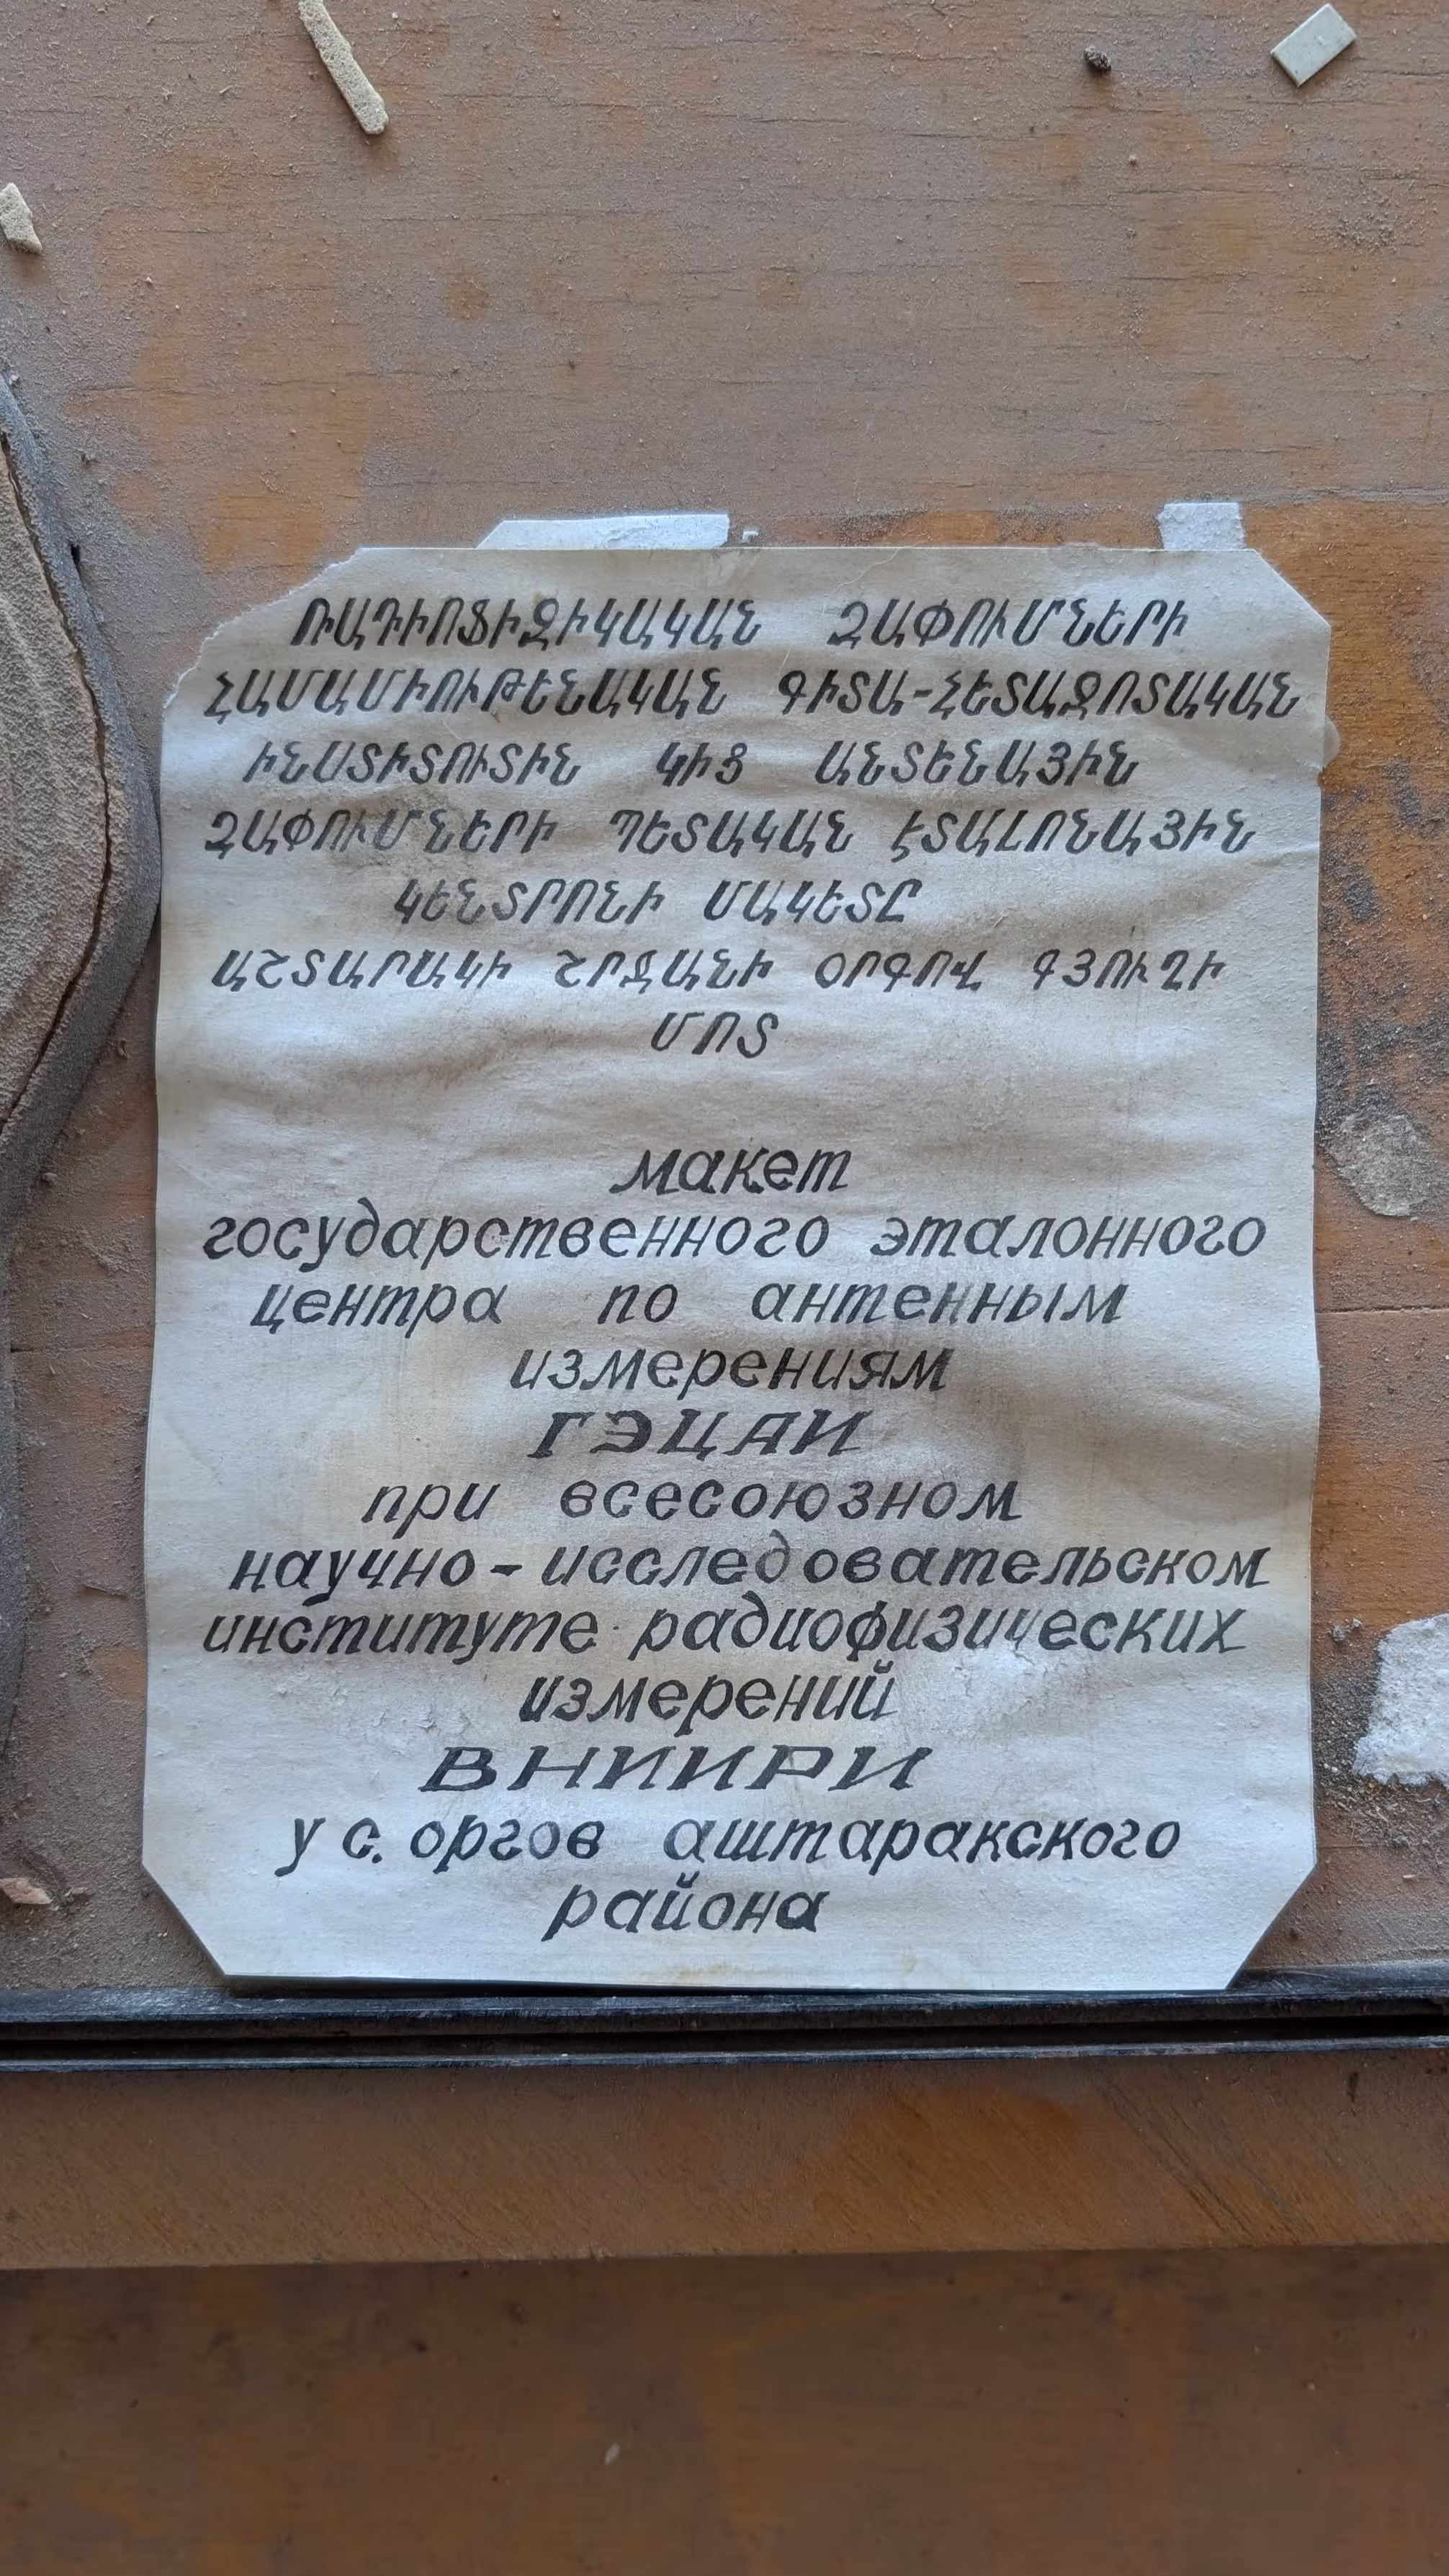 ՌԱԴԻՈՖԻԶԻԿԱԿԱՆ ՉԱՓՈՒՄՆԵՐԻ
ՀԱՄԱՄԻՈՒԹԵՆԱԿԱՆ ԳԻՏԱ-ՀԵՏԱԶՈՏԱԿԱՆ
ԻՆՍՏԻՏՈՒՏԻՆ ԿԻՑ ԱՆՏԵՆԱՅԻՆ
ՉԱՓՈՒՄՆԵՐԻ ՊԵՏԱԿԱՆ ԷՏԱԼՈՆԱՅԻՆ
ԿԵՆՏՐՈՆԻ ՄԱԿԵՏԸ
ԱՇՏԱՐԱԿԻ ՇՐՋԱՆԻ ՕՐԳՈՎ ԳՅՈՒՂԻ
ՄՈՏ
макет
государственного эталонного
центра по антенным
измерениям
ГЭЦАИ
при всесоюзном
научно-исследовательском
институте радиофизических
измерений
ВНИИРИ
у с. оргов аштаракского
района